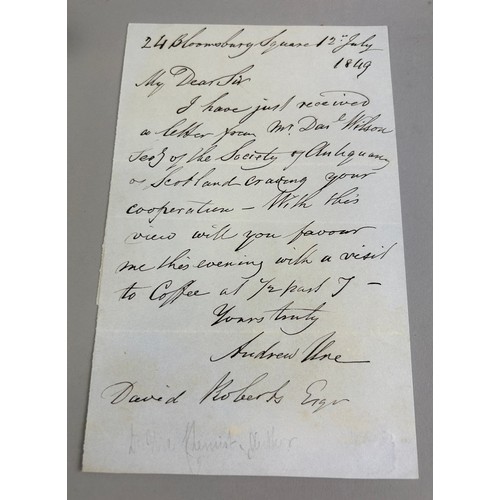 24 Bloomsbury Square 12th July
1849
My Dear Sir
I have just received
a letter from Mr. Danl Wilson
Secy of the Society of Antiquary
of Scotland craving your
cooperation – With this
view will you favour
me this evening with a visit
to Coffee at 1/2 past 7 –
Yours truly
Andrew Ure
David Roberts Esqr
Chemist